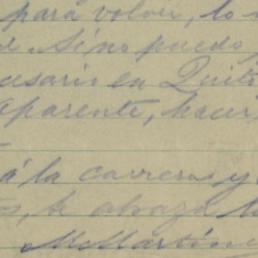 para volver, lo
Si no puedo
cesario en Quito
aparente, hacer
á la carrera y
abraza
M. Martínez